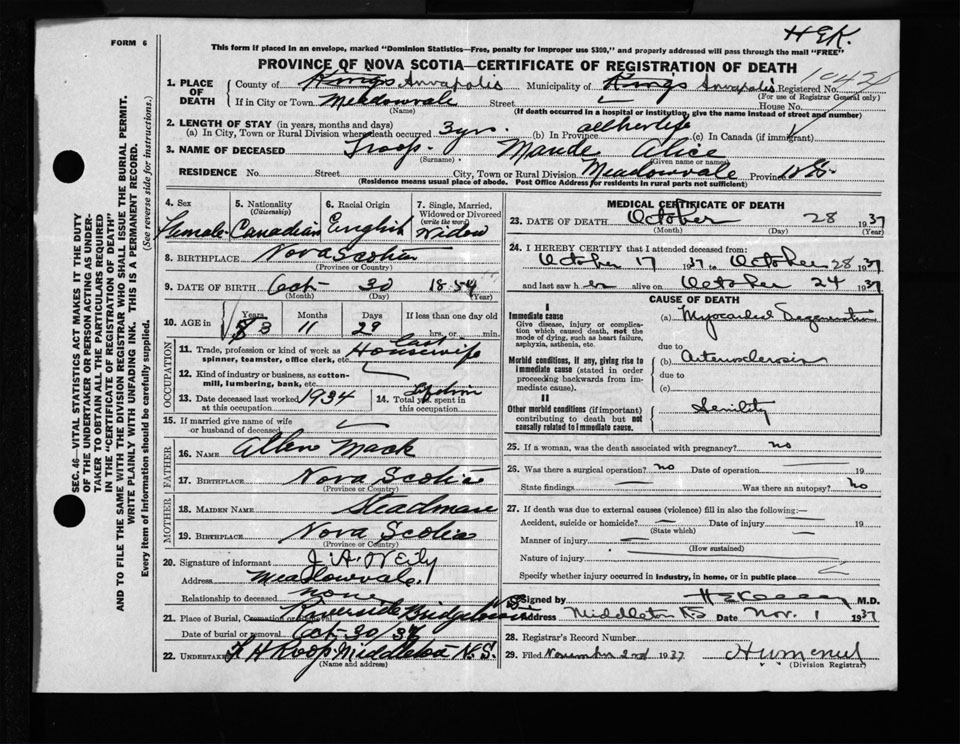 H E K.
FORM 6
This form if placed in an envelope, marked "Dominion Statistics—Free, penalty for improper use $300," and properly addressed will pass through the mail "FREE"
PROVINCE OF NOVA SCOTIA—CERTIFICATE OF REGISTRATION OF DEATH
1. PLACE OF DEATH
County of Kings Annapolis Municipality of Kings Annapolis Registered No.
(For use of Registrar General only)
If in City or Town Meadowvale Street House No.
(Name) (If death occurred in a hospital or institution, give the name instead of street and number)
2. LENGTH OF STAY (in years, months and days)
(a) In City, Town or Rural Division where death occurred 3 yrs. (b) In Province all her life (c) In Canada (if immigrant)
3. NAME OF DECEASED Troop Maude Alice
(Surname) (Given name or names)
RESIDENCE No. Street City, Town or Rural Division Meadowvale Province N.S.
(Residence means usual place of abode. Post Office Address for residents in rural parts not sufficient)
4. Sex Female
5. Nationality (Citizenship) Canadian
6. Racial Origin English
7. Single, Married, Widowed or Divorced (write the word) Widow
8. BIRTHPLACE Nova Scotia
(Province or Country)
9. DATE OF BIRTH Oct 30 1854
(Month) (Day) (Year)
10. AGE in Years Months Days If less than one day old
83 11 29 hrs. or min.
OCCUPATION
11. Trade, profession or kind of work as spinner, teamster, office clerk, etc. Housewife
12. Kind of industry or business, as cotton-mill, lumbering, bank, etc.
13. Date deceased last worked at this occupation 1934
14. Total yrs. spent in this occupation
15. If married give name of wife or husband of deceased
FATHER
16. NAME Allen Mack
17. BIRTHPLACE Nova Scotia
(Province or Country)
MOTHER
18. MAIDEN NAME Steadman
19. BIRTHPLACE Nova Scotia
(Province or Country)
20. Signature of informant J. A. Neily
Address Meadowvale
Relationship to deceased none
21. Place of Burial, Cremation or Removal Riverside Bridgetown
Date of burial or removal Oct 30/37
22. UNDERTAKER F H Roop Middleton N.S.
(Name and address)
MEDICAL CERTIFICATE OF DEATH
23. DATE OF DEATH October 28 1937
(Month) (Day) (Year)
24. I HEREBY CERTIFY that I attended deceased from:
October 17 1937 to October 28 1937
and last saw her alive on October 24 1937
CAUSE OF DEATH
I
Immediate cause
Give disease, injury or complication which caused death, not the mode of dying, such as heart failure, asphyxia, asthenia, etc.
(a) Myocardial Degeneration
due to
Morbid conditions, if any, giving rise to immediate cause (stated in order proceeding backwards from immediate cause).
(b) Arteriosclerosis
due to
(c)
II
Other morbid conditions (if important) contributing to death but not causally related to immediate cause.
Senility
25. If a woman, was the death associated with pregnancy? no
26. Was there a surgical operation? no Date of operation 19
State findings Was there an autopsy? no
27. If death was due to external causes (violence) fill in also the following:—
Accident, suicide or homicide? Date of injury 19
(State which)
Manner of injury
(How sustained)
Nature of injury
Specify whether injury occurred in industry, in home, or in public place
Signed by M.D.
Address Middleton NS Date Nov. 1 1937
28. Registrar's Record Number
29. Filed November 2nd 1937
(Division Registrar)
SEC. 46—VITAL STATISTICS ACT MAKES IT THE DUTY
OF THE UNDERTAKER OR PERSON ACTING AS UNDERTAKER
TO OBTAIN ALL THE PARTICULARS REQUIRED
IN THE "CERTIFICATE OF REGISTRATION OF DEATH"
AND TO FILE THE SAME WITH THE DIVISION REGISTRAR WHO SHALL ISSUE THE BURIAL PERMIT.
WRITE PLAINLY WITH UNFADING INK. THIS IS A PERMANENT RECORD.
Every item of Information should be carefully supplied. (See reverse side for instructions.)